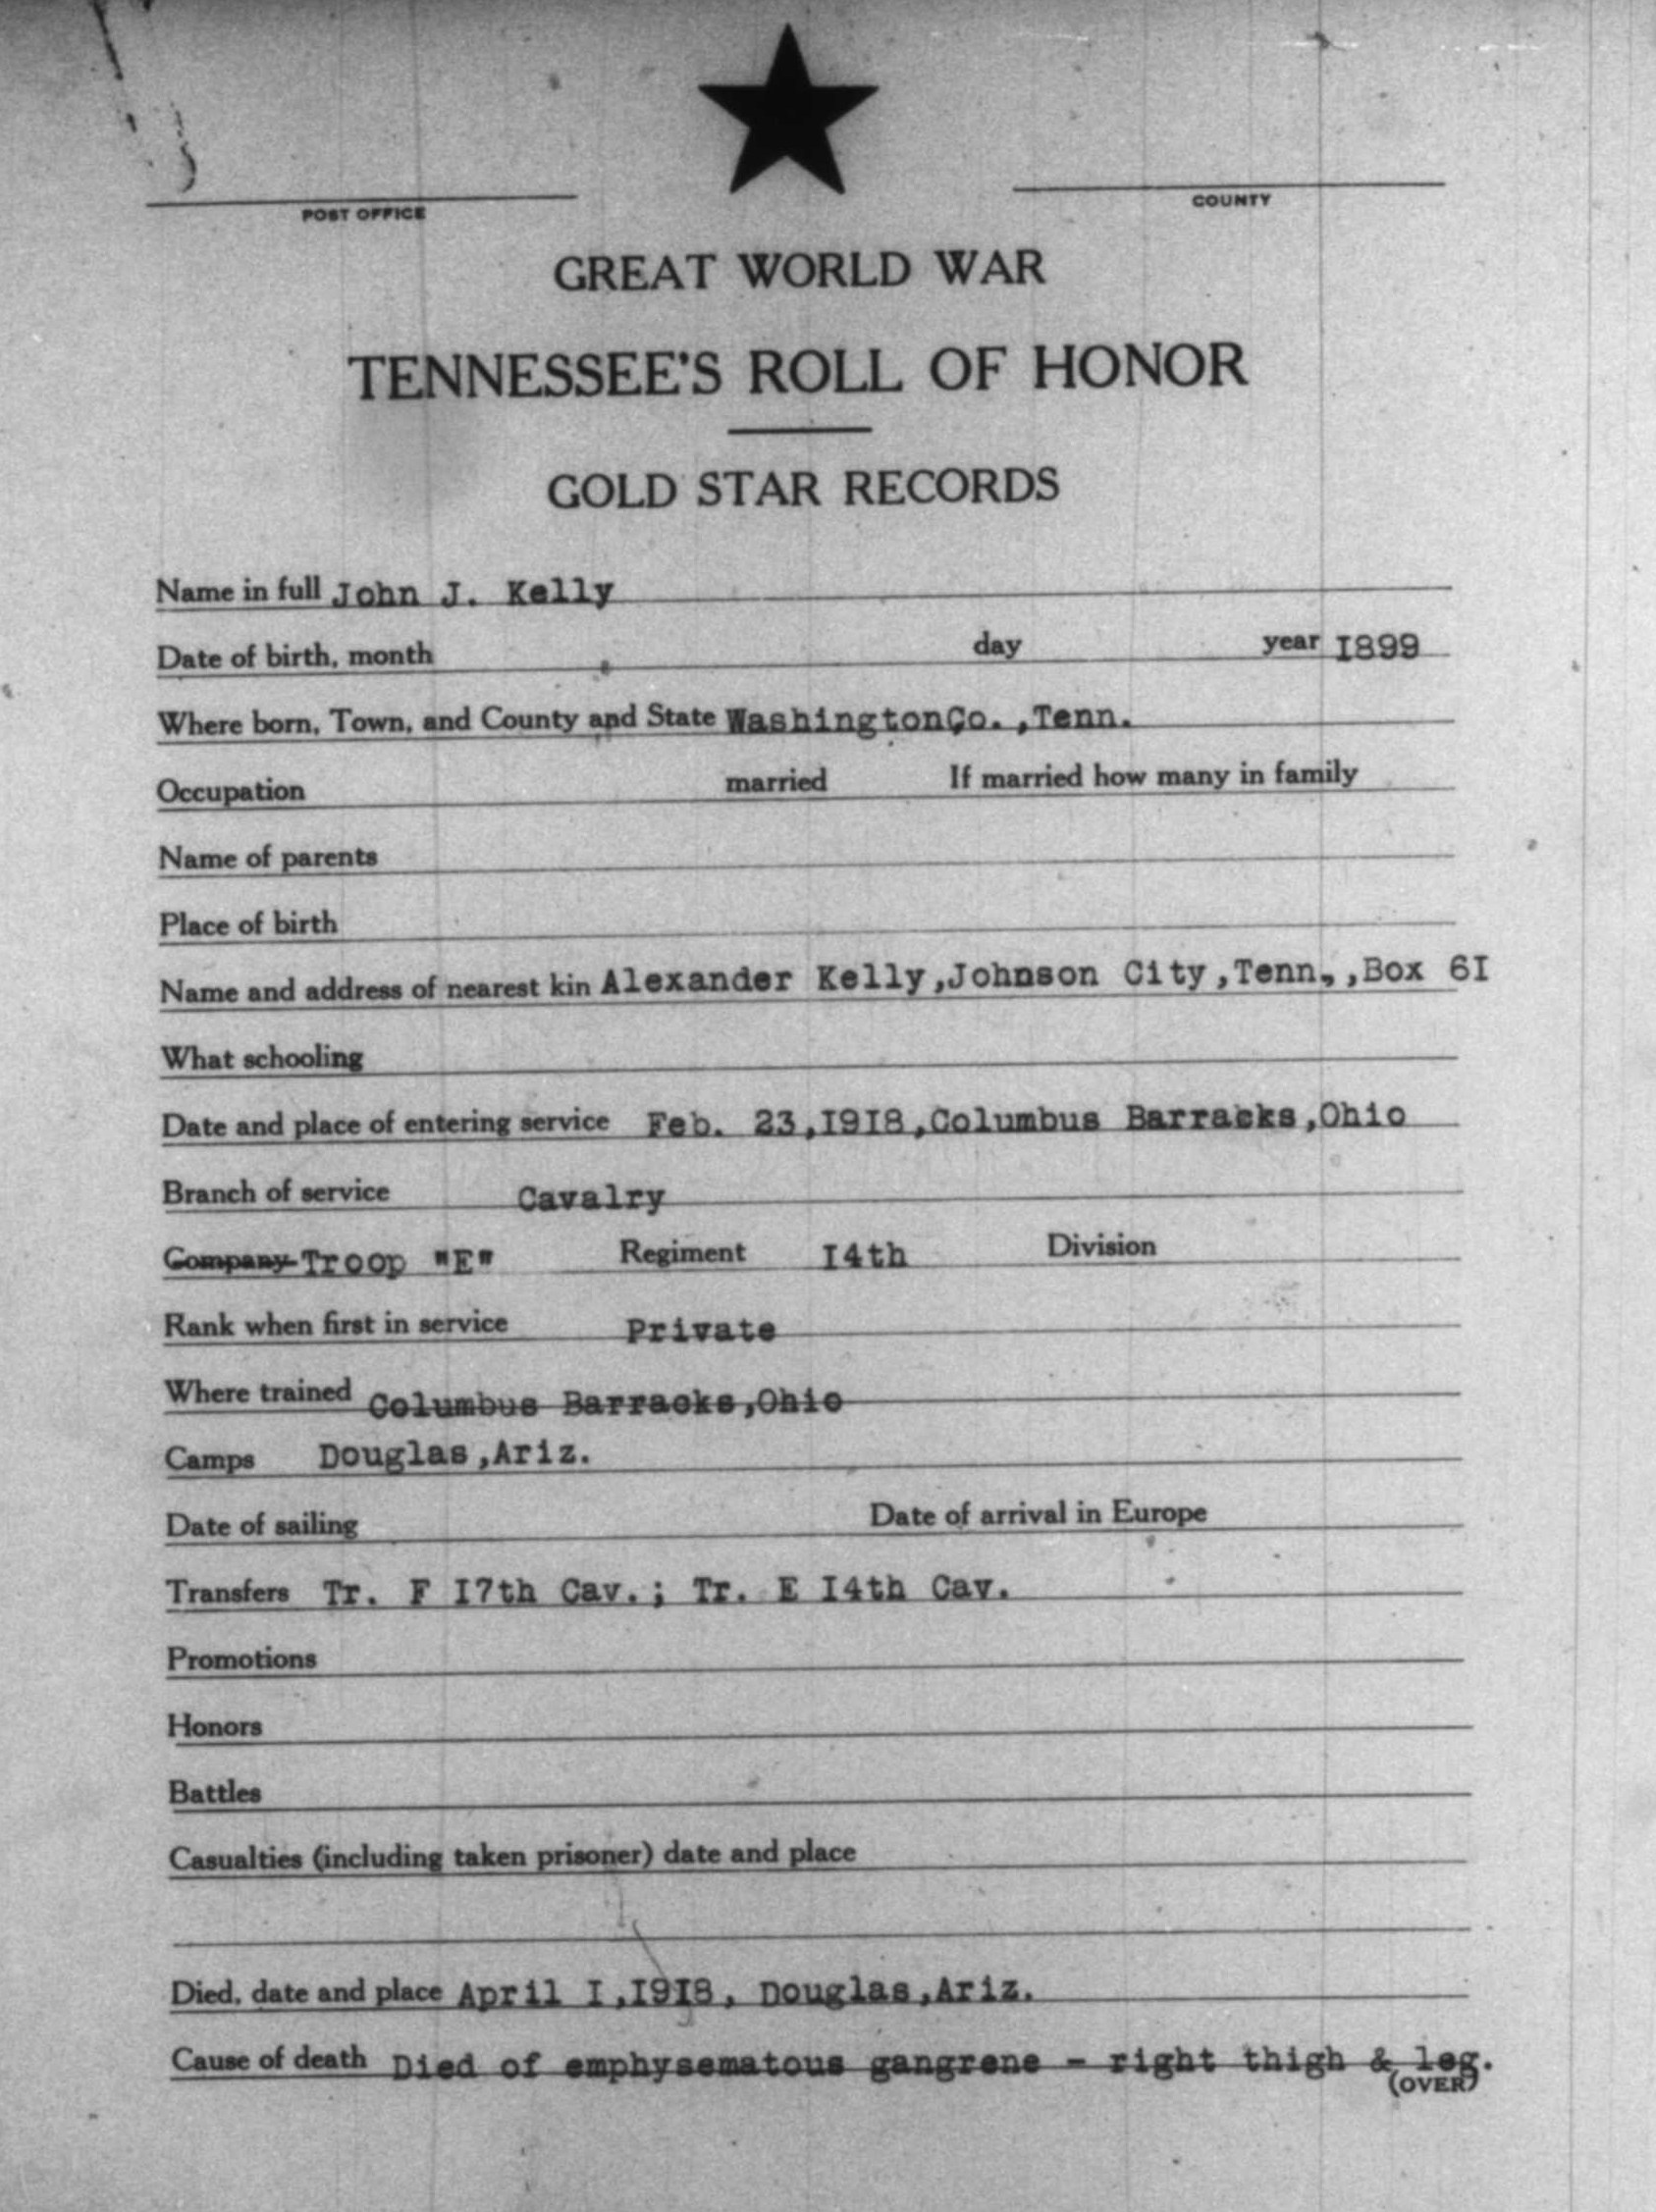 POST OFFICE
COUNTY
GREAT WORLD WAR
TENNESSEE'S ROLL OF HONOR
GOLD STAR RECORDS
Name in full John J. Kelly
Date of birth, month day year I899
Where born, Town, and County and State WashingtonCo.,Tenn.
Occupation married If married how many in family
Name of parents
Place of birth
Name and address of nearest kin Alexander Kelly,Johnson City,Tenn.,Box 6I
What schooling
Date and place of entering service Feb. 23,I9I8,Columbus Barracks,Ohio
Branch of service Cavalry
Company Troop "E" Regiment I4th Division
Rank when first in service Private
Where trained Columbus Barracks,Ohio
Camps Douglas,Ariz.
Date of sailing Date of arrival in Europe
Transfers Tr. F I7th Cav.; Tr. E I4th Cav.
Promotions
Honors
Battles
Casualties (including taken prisoner) date and place
Died, date and place April I,I9I8, Douglas,Ariz.
Cause of death Died of emphysematous gangrene - right thigh & leg.
(OVER)